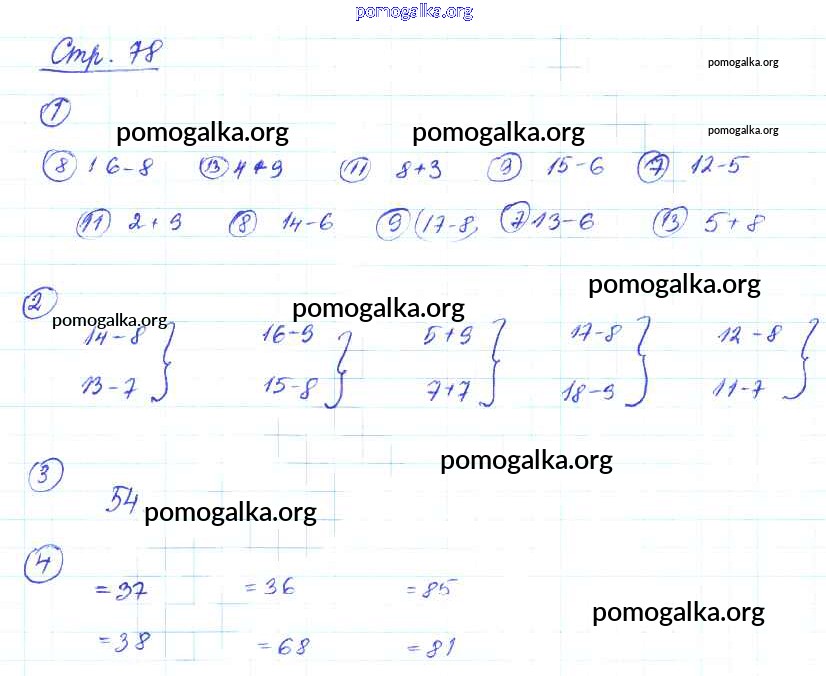 pomogalka.org
Стр. 78
pomogalka.org
1
pomogalka.org pomogalka.org pomogalka.org
8 16-8 13 4+9 11 8+3 9 15-6 7 12-5
11 2+9 8 14-6 9 (17-8) 7 13-6 13 5+8
pomogalka.org
2 pomogalka.org
pomogalka.org
14-8 } 16-9 } 5+9 } 17-8 } 12-8 }
13-7 15-8 7+7 18-9 11-7
3
pomogalka.org
54 pomogalka.org
4
=37 =36 =85
pomogalka.org
=38 =68 =81